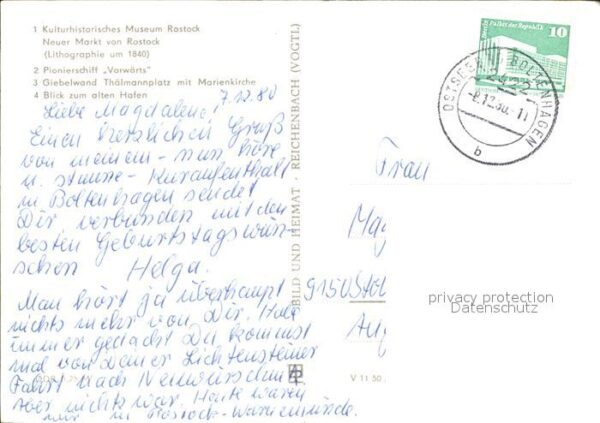 1 Kulturhistorisches Museum Rostock
Neuer Markt von Rostock
(Lithographie um 1840)
2 Pionierschiff „Vorwärts"
3 Giebelwand Thälmannplatz mit Marienkirche
4 Blick zum alten Hafen
7.12.80
Liebe Magdalene,
Einen herzlichen Gruß
von meinem - nun höre
u. staune - Kuraufenthalt
in Boltenhagen sendet
Dir verbunden mit den
besten Geburtstagswün-
schen Helga.
Man hört ja überhaupt
nichts mehr von Dir. Hab
immer gedacht Du kommst
mal von Deiner Lichtensteiner
Fahrt nach
aber nichts war. Heute waren
wir in Rostock-Warnemünde.
BILD UND HEIMAT · REICHENBACH (VOGTL)
V 11 50
10
OSTSEEBAD BOLTENHAGEN
2422
-8.12.80.-11
b
Frau
Mag
9150 Stol
privacy protection
Datenschutz